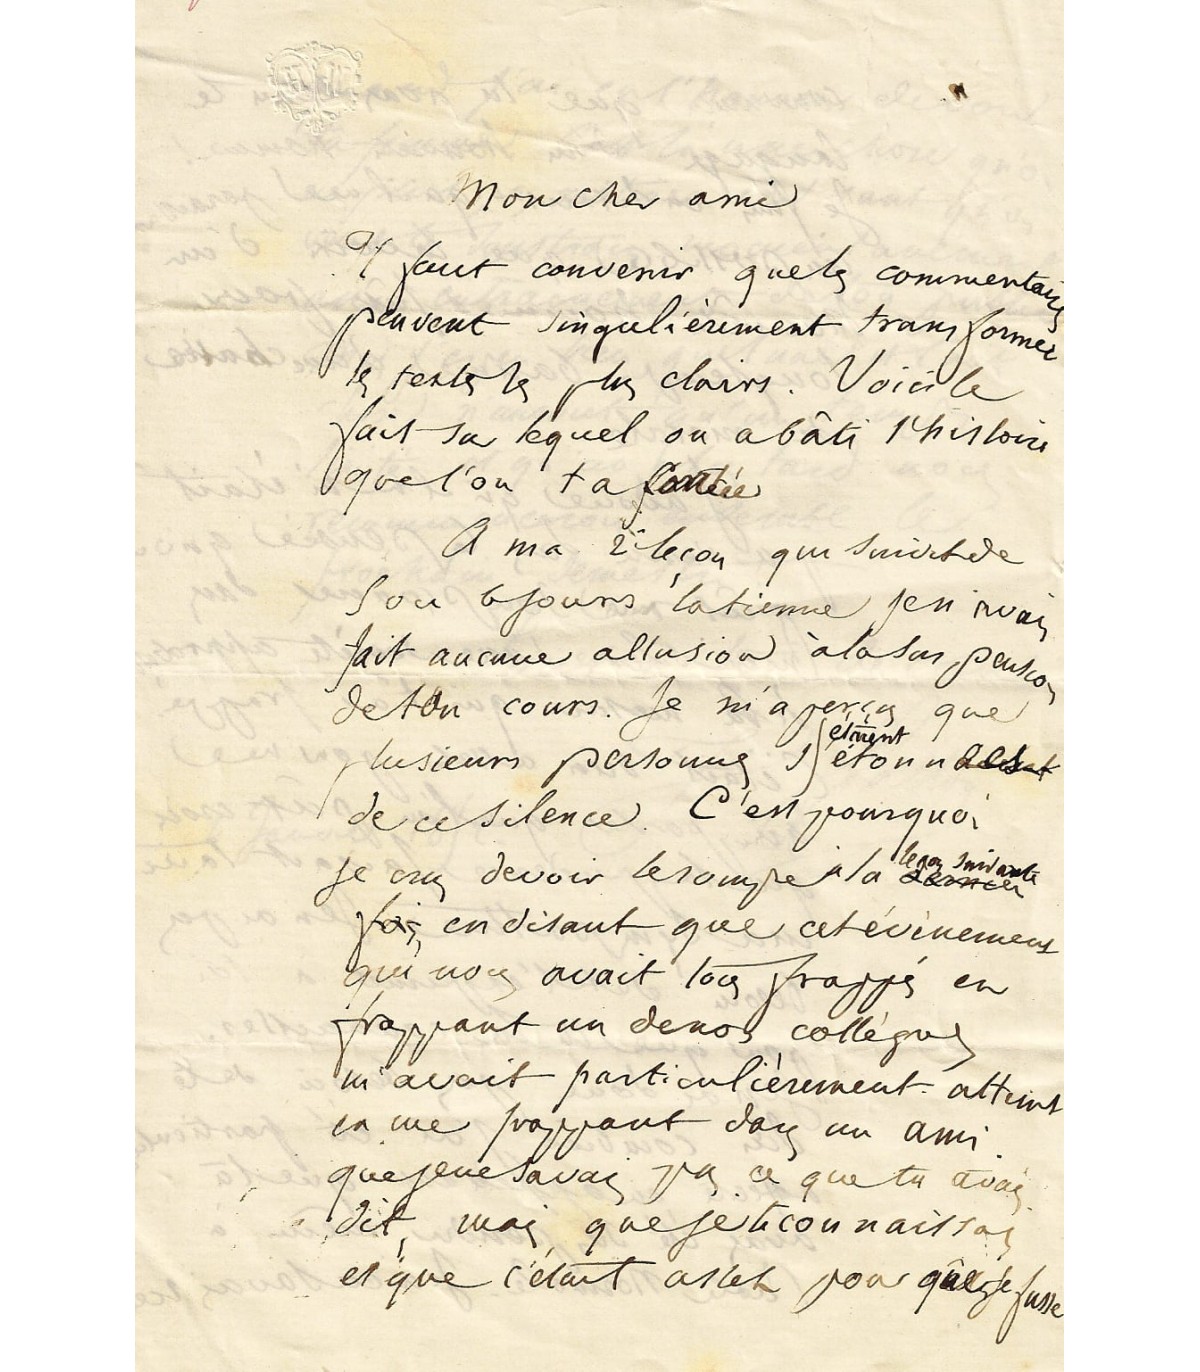 Mon cher ami
Il faut convenir que les commentaires
peuvent singulièrement transformer
les textes les plus clairs. Voici le
fait sur lequel on a bâti l'histoire
que l'on t'a contée
A ma 2e leçon qui suivit de
5 ou 6 jours la tienne je n'avais
fait aucune allusion à la suspension
de ton cours. Je m'aperçus que
plusieurs personnes s'étaient étonn
de ce silence. C'est pourquoi
je crus devoir le rompre à la leçon suivante
fois, en disant que cet évènement
qui nous avait tous frappés en
frappant un de nos collègues
m'avait particulièrement atteint
en me frappant dans un ami
que je ne savais pas ce que tu avais
dit, mais que je te connaissais
et que c'était assez pour que je fusse